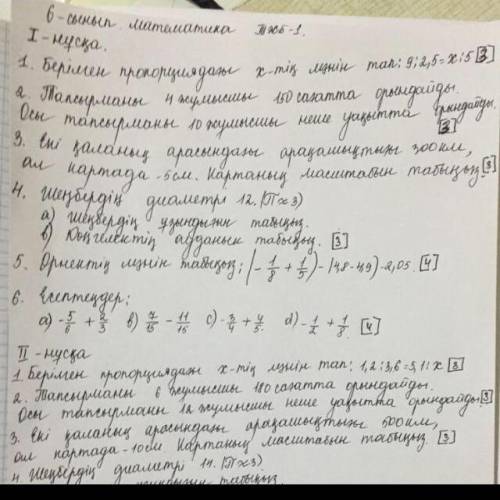 6-сынып математика ТЖБ-1.
I-нұсқа.
1. Берілген пропорциядағы х-тің мәнін тап: 9:2,5=х:5 [3]
2. Тапсырманы 4 жұмысшы 150 сағатта орындайды.
Осы тапсырманы 10 жұмысшы неше уақытта орындайды. [3]
3. Екі қаланың арасындағы арақашықтығы 300км,
ал картада -5см. Картаның масштабын табыңыз. [3]
4. Шеңбердің диаметрі 12. (П≈3)
а) Шеңбердің ұзындығын табыңыз.
в) Дөңгелектің ауданын табыңыз. [3]
5. Өрнектің мәнін табыңыз; (-1/8 + 1/5) - (4,8-4,9)·2,05. [4]
6. Есептеңдер;
а) -5/6 + 2/3 в) 7/15 - 11/15 с) -3/4 + 4/5. d) -1/2 + 1/8. [4]
II-нұсқа
1. Берілген пропорциядағы х-тің мәнін тап: 1,2:3,6=5,1:х [3]
2. Тапсырманы 6 жұмысшы 180 сағатта орындайды.
Осы тапсырманы 12 жұмысшы неше уақытта орындайды. [3]
3. Екі қаланың арасындағы арақашықтығы 500км,
ал картада -10см. Картаның масштабын табыңыз. [3]
4. Шеңбердің диаметрі 14. (П≈3)
табыңыз.